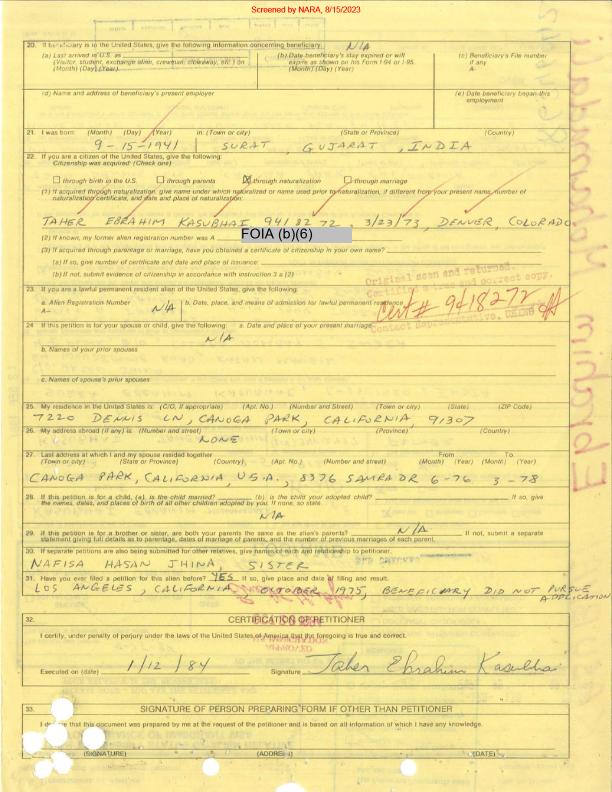 Screened by NARA, 8/15/2023
20. If beneficiary is in the United States, give the following information concerning beneficiary: N/A
(a) Last arrived in U.S. as
(Visitor, student, exchange alien, crewman, stowaway, etc.) on
(Month) (Day) (Year)
(b) Date beneficiary's stay expired or will
expire as shown on his Form I-94 or I-95.
(Month) (Day) (Year)
(c) Beneficiary's File number
if any
A-
(d) Name and address of beneficiary's present employer
(e) Date beneficiary began this
employment
21. I was born: (Month) (Day) (Year) in: (Town or city) (State or Province) (Country)
9-15-1941 SURAT, GUJARAT, INDIA
22. If you are a citizen of the United States, give the following:
Citizenship was acquired: (Check one)
through birth in the U.S. through parents ☒ through naturalization through marriage
(1) If acquired through naturalization, give name under which naturalized or name used prior to naturalization, if different from your present name, number of
naturalization certificate, and date and place of naturalization:
TAHER EBRAHIM KASUBHAI, 9418272, 3/23/73, DENVER, COLORADO
(2) If known, my former alien registration number was A
FOIA (b)(6)
(3) If acquired through parentage or marriage, have you obtained a certificate of citizenship in your own name?
(a) If so, give number of certificate and date and place of issuance:
(b) If not, submit evidence of citizenship in accordance with instruction 3 a (2)
Original seen and returned.
Certified a true and correct copy.
Cert # 9418272
Contact Representative,
23. If you are a lawful permanent resident alien of the United States, give the following:
a. Alien Registration Number b. Date, place, and means of admission for lawful permanent residence
A- N/A
24. If this petition is for your spouse or child, give the following: a. Date and place of your present marriage
N/A
b. Names of your prior spouses
c. Names of spouse's prior spouses
25. My residence in the United States is: (C/O, if appropriate) (Apt. No.) (Number and Street) (Town or city) (State) (ZIP Code)
7220 DENNIS LN, CANOGA PARK, CALIFORNIA, 91307
26. My address abroad (if any) is: (Number and street) (Town or city) (Province) (Country)
NONE
27. Last address at which I and my spouse resided together From To
(Town or city) (State or Province) (Country) (Apt. No.) (Number and street) (Month) (Year) (Month) (Year)
CANOGA PARK, CALIFORNIA, U.S.A., 8376 SAMRA DR 6-76 3-78
28. If this petition is for a child, (a) is the child married? (b) is the child your adopted child? If so, give
the names, dates, and places of birth of all other children adopted by you. If none, so state.
N/A
29. If this petition is for a brother or sister, are both your parents the same as the alien's parents? N/A If not, submit a separate
statement giving full details as to parentage, dates of marriage of parents, and the number of previous marriages of each parent.
30. If separate petitions are also being submitted for other relatives, give names of each and relationship to petitioner.
NAFISA HASAN JHINA, SISTER
31. Have you ever filed a petition for this alien before? YES If so, give place and date of filing and result.
LOS ANGELES, CALIFORNIA OCTOBER 1975, BENEFICIARY DID NOT PURSUE
APPLICATION
32. CERTIFICATION OF PETITIONER
I certify, under penalty of perjury under the laws of the United States of America that the foregoing is true and correct.
Executed on (date) 1/12/84 Signature Taher Ebrahim Kasubhai
33. SIGNATURE OF PERSON PREPARING FORM IF OTHER THAN PETITIONER
I declare that this document was prepared by me at the request of the petitioner and is based on all information of which I have any knowledge.
(SIGNATURE) (ADDRESS) (DATE)